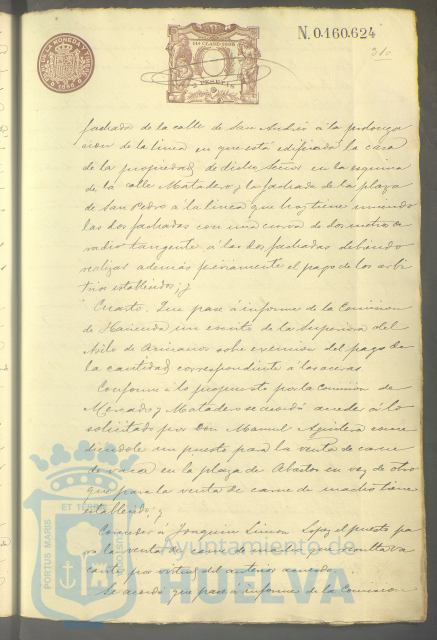 N. 0.160.624
310
11ª CLASE 1898
2 PESETAS
fachada de la calle de San Andrés á la prolonga
cion de la linea en que está edificada la casa
de la propiedad de dicho Señor en la esquina
de la calle Matadero y la fachada de la plaza
de San Pedro á la linea que hoy tiene uniendo
las dos fachadas con una curva de dos metros de
radio tangente á las dos fachadas debiendo
realizar además préviamente el pago de los arbi
trios establecidos; y
Cuarto. Que pase á informe de la Comision
de Hacienda un escrito de la Superiora del
Asilo de Ancianos sobre exencion del pago de
la cantidad correspondiente á las aceras
Conforme á lo propuesto por la Comisión de
Mercado y Matadero se acordó acceder á lo
solicitado por Don Manuel Aguilera conce
diendole un puesto para la venta de carne
de vaca en la plaza de Abastos en vez de otro
que para la venta de carne de macho tiene
establecido; y
Conceder á Joaquin Limon Lopez el puesto pa
ra la venta de carne de macho que resultava
cante por virtud del anterior acuerdo.
Se acordó que pase á informe de la Comision
PORTUS MARIS ET TERRAE
Ayuntamiento de
HUELVA